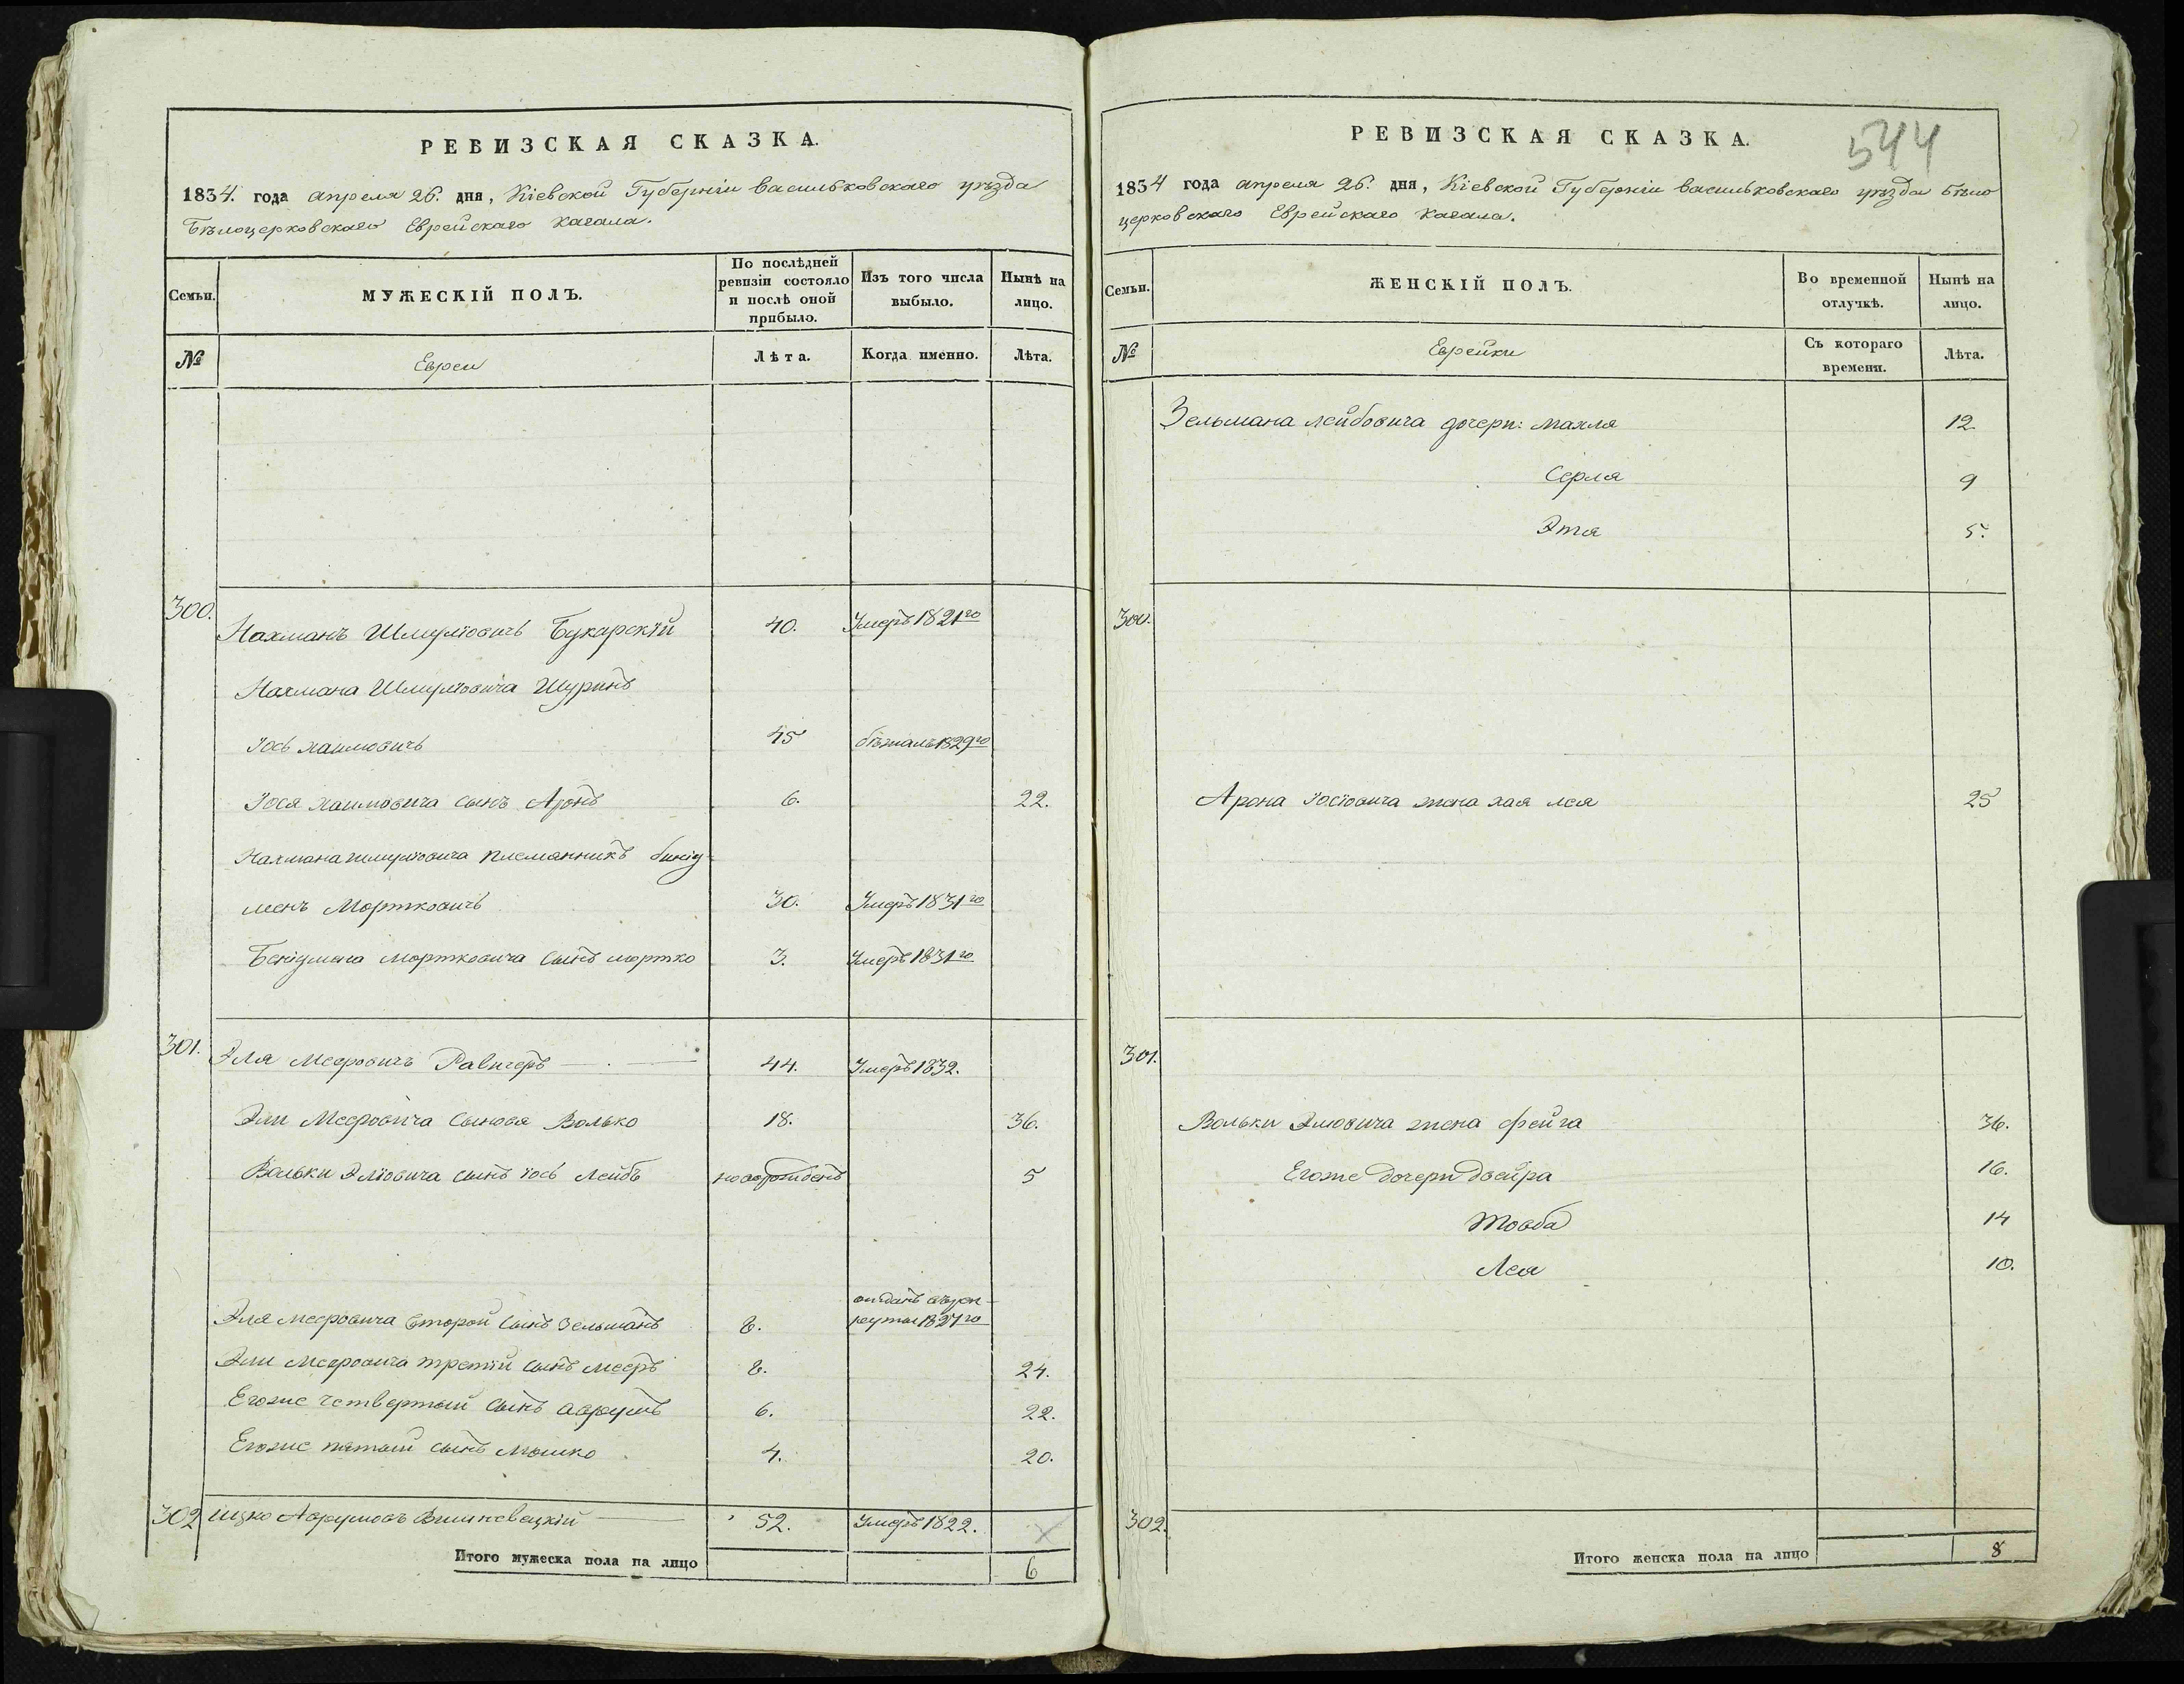 РЕВИЗСКАЯ СКАЗКА.
1834. года апреля 26. дня, Кіевской Губерніи васильковскаго уѣзда
Бѣлоцерковскаго Еврейскаго Кагала.
Семьи.
МУЖЕСКІЙ ПОЛЪ.
По послѣдней ревизіи состояло и послѣ оной прибыло.
Изъ того числа выбыло.
Нынѣ на лицо.
№
Евреи
Лѣта.
Когда именно.
Лѣта.
300. Нахманъ Шмулiовичъ Букарскій 40. Умеръ 1821го
Нахмана Шмулiовича Шуринъ
Іось хаимовичъ 45 бѣжалъ 1829го
Іося хаимовича сынъ Аронъ 6. 22.
Нахмана шмулiовича племянникъ бинiу
менъ Мортковичъ 30. Умеръ 1831го
Бенiумена мортковича сынъ мортко 3. Умеръ 1831го
301. Эля Мееровичъ Равичеръ 44. Умеръ 1832.
Эли Мееровича сыновя Волько 18. 36.
Вольки Элiовича сынъ iось Лейбъ новорожденъ 5
отданъ въ рек
Эля мееровича второй сынъ Зельманъ 8. руты 1827го
Эли Мееровича третій сынъ мееръ 8. 24.
Егоже четвертый сынъ аврумъ 6. 22.
Егоже пятый сынъ Мошко 4. 20.
302 ицко Аврумовъ Вишневецкій 52. Умеръ 1822.
Итого мужеска пола на лицо 6
РЕВИЗСКАЯ СКАЗКА.
544
1834 года апреля 26. дня, Кіевской Губерніи васильковскаго уѣзда бѣло
церковскаго Еврейскаго Кагала.
Семьи.
ЖЕНСКІЙ ПОЛЪ.
Во временной отлучкѣ.
Нынѣ на лицо.
№
Еврейки
Съ котораго времени.
Лѣта.
Зельмана лейбовича дочери: махля 12.
Серля 9
Этя 5.
300.
Арона Іосiовича жена хая лея 25
301.
Вольки Элiовича жена фейга 36.
Егоже дочери двейра 16.
Товба 14
Лея 10.
302.
Итого женска пола на лицо 8